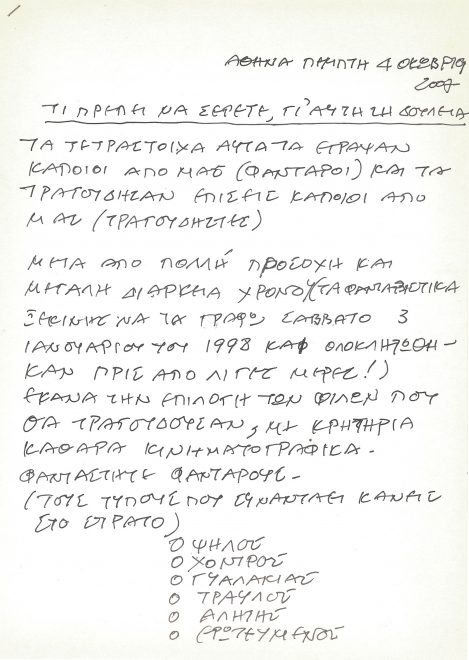 ΑΘΗΝΑ ΠΕΜΠΤΗ 4 ΟΚΤΩΒΡΙΟΥ
2007
ΤΙ ΠΡΕΠΕΙ ΝΑ ΞΕΡΕΤΕ, ΓΙ' ΑΥΤΗ ΤΗ ΔΟΥΛΕΙΑ
ΤΑ ΤΕΤΡΑΣΤΟΙΧΑ ΑΥΤΑ ΤΑ ΕΓΡΑΨΑΝ
ΚΑΠΟΙΟΙ ΑΠΟ ΜΑΣ (ΦΑΝΤΑΡΟΙ) ΚΑΙ ΤΑ
ΤΡΑΓΟΥΔΗΣΑΝ ΕΠΙΣΕΙΣ ΚΑΠΟΙΟΙ ΑΠΟ
ΜΑΣ (ΤΡΑΓΟΥΔΗΣΤΕΣ)
ΜΕΤΑ ΑΠΟ ΠΟΛΛΗ ΠΡΟΣΟΧΗ ΚΑΙ
ΜΕΓΑΛΗ ΔΙΑΡΚΕΙΑ ΧΡΟΝΟΥ (ΤΑ ΦΑΝΤΑΡΙΣΤΙΚΑ
ΞΕΚΙΝΗΣΕ ΝΑ ΤΑ ΓΡΑΦΩ ΣΑΒΒΑΤΟ 3
ΙΑΝΟΥΑΡΙΟΥ ΤΟΥ 1998 ΚΑΙ ΟΛΟΚΛΗΡΩΘΗ-
ΚΑΝ ΠΡΙΣ ΑΠΟ ΛΙΓΕΣ ΜΕΡΕΣ!)
ΕΚΑΝΑ ΤΗΝ ΕΠΙΛΟΓΗ ΤΩΝ ΦΙΛΩΝ ΠΟΥ
ΘΑ ΤΡΑΓΟΥΔΟΥΣΑΝ, ΜΕ ΚΡΗΤΗΡΙΑ
ΚΑΘΑΡΑ ΚΙΝΗΜΑΤΟΓΡΑΦΙΚΑ -
ΦΑΝΤΑΣΤΗΤΕ ΦΑΝΤΑΡΟΥΣ -
(ΤΟΥΣ ΤΥΠΟΥΣ ΠΟΥ ΣΥΝΑΝΤΑΕΙ ΚΑΝΕΙΣ
ΣΤΟ ΣΤΡΑΤΟ)
Ο ΨΗΛΟΣ
Ο ΧΟΝΤΡΟΣ
Ο ΓΥΑΛΑΚΙΑΣ
Ο ΤΡΑΥΛΟΣ
Ο ΑΛΗΤΗΣ
Ο ΕΡΩΤΕΥΜΕΝΟΣ